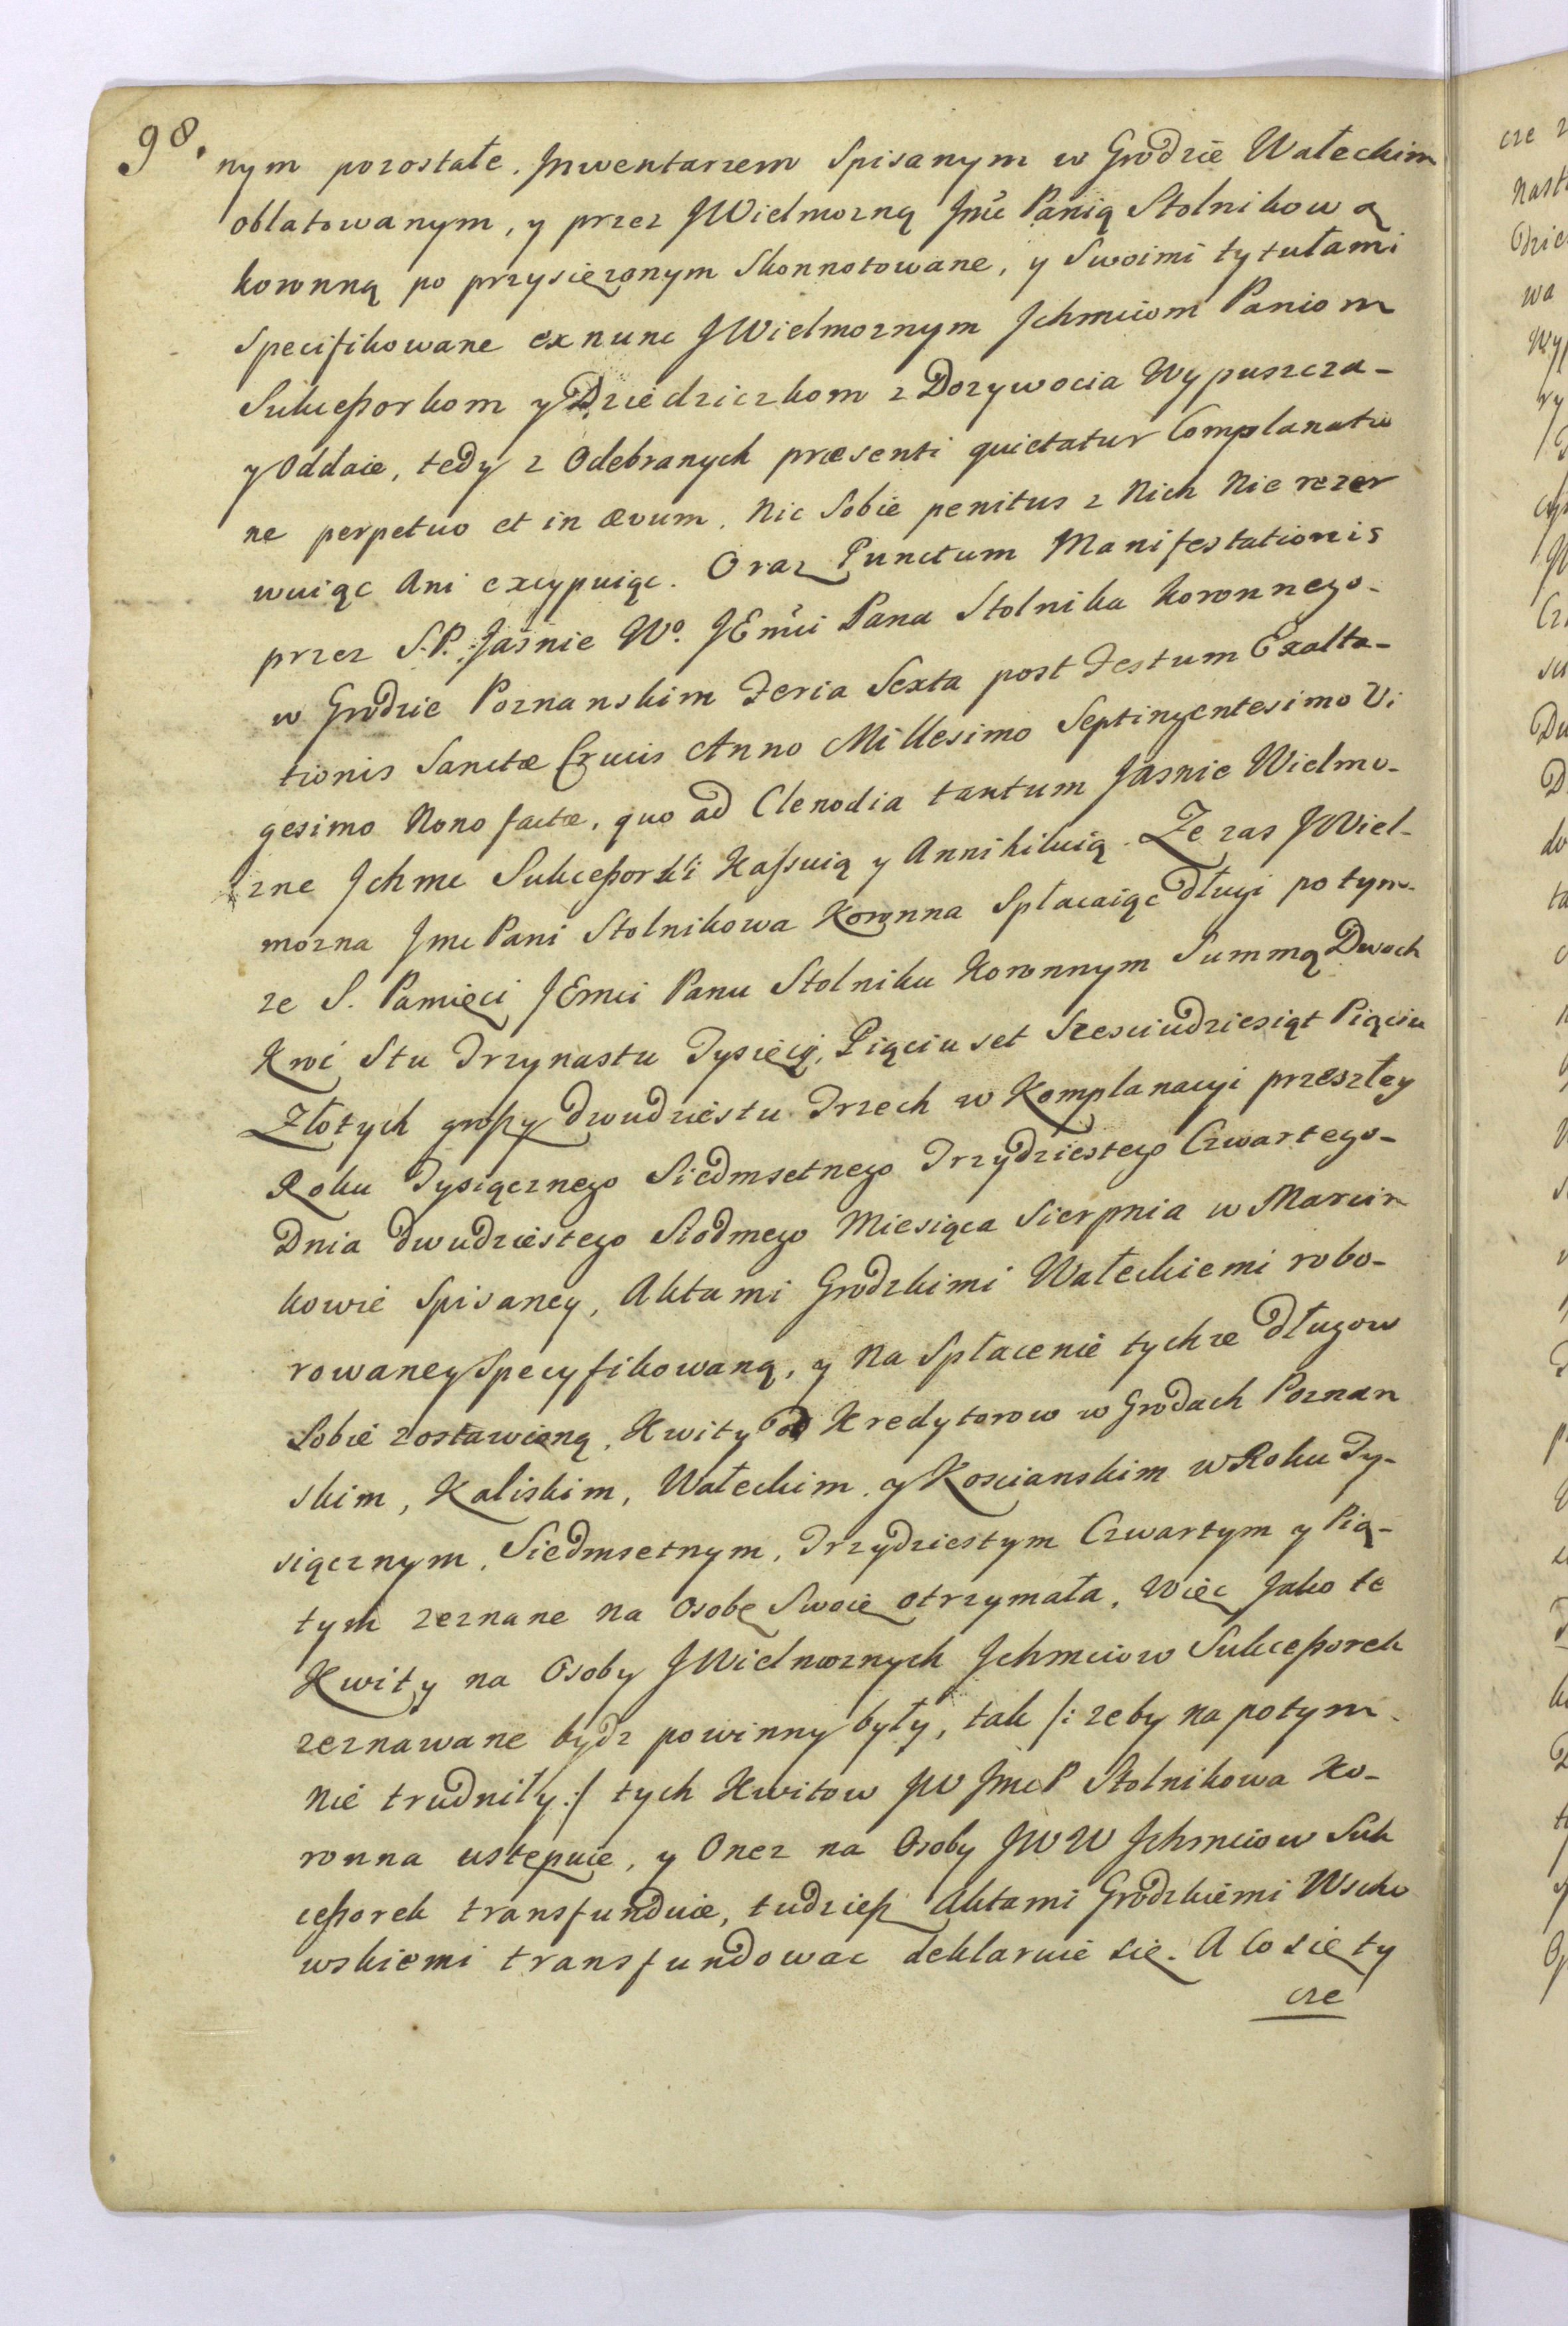 98.
nym pozostałe. Jnwentarzem Spisanym w Grodzie Wałeckim
oblatowanym, y przez JWielmozną Jmć Panią Stolnikową
koronną po przysięzonym Skonnotowane, y Swoimi tytułami
Specifikowane ex nunc JWielmoznym Jchmciom Paniom
Sukceßorkom y Dziedziczkom z Dozywocia Wypuszcza-
y Oddaie, tedy z Odebranych præsenti quietatur Complanatio
ne perpetuo et in ævum. Nic Sobie penitus z Nich Nie rezer
wuiąc Ani excypuiąc. Oraz Punctum Manifestationis
przez S. P. Jaśnie Wo. JEmći Pana Stolnika koronnego-
w Grodzie Poznanskim Feria Sexta post Festum Exalta-
tionis Sanctæ Crucis Anno Millesimo Septingentesimo Vi
gesimo Nono factæ, quo ad Clenodia tantum Jasnie Wielmo-
zne Jchmc Sukceßorki Kassuią y Annihiluią. Ze zas JWiel-
mozna Jmc Pani Stolnikowa Koronna Spłacaiąc długi po tym-
ze S. Pamięci JEmci Panu Stolniku Koronnym Summą Dwoch
Kroć Stu Trzynastu Tysięcy, Piąciu set Szesciudziesiąt Piąciu
Złotych großy dwudziestu Trzech w Komplanacyi przeszłey
Roku Tysiącznego Siedmsetnego Trzydziestego Czwartego-
Dnia dwudziestego Siodmego Miesiąca Sierpnia w Marcin
kowie Spisaney, Aktami Grodzkimi Wałeckiemi robo-
rowaney Specyfikowaną, y na Spłacenie tychze długow
Sobie zostawioną, Kwity od Kredytorow w Grodach Poznan
skim, Kaliskim, Wałeckim, y Kosciańskim w Roku Ty-
siącznym, Siedmsetnym, Trzydziestym Czwartym y Pią-
tym zeznane na Osobę Swoię otrzymała, Więc Jako te
Kwity na Osoby JWielmoznych Jchmciow Sukceßorek
zeznawane bydz powinny były, tak /: zeby na potym-
nie trudniły :/ tych Kwitow JW JmcP Stolnikowa Ko-
ronna ustępuie, y Onez na Osoby JWW Jchmciow Suk
ceßorek transfunduie, tudzieß Aktami Grodzkiemi Wscho
wskiemi transfundowac deklaruie się. A Co się ty
cze